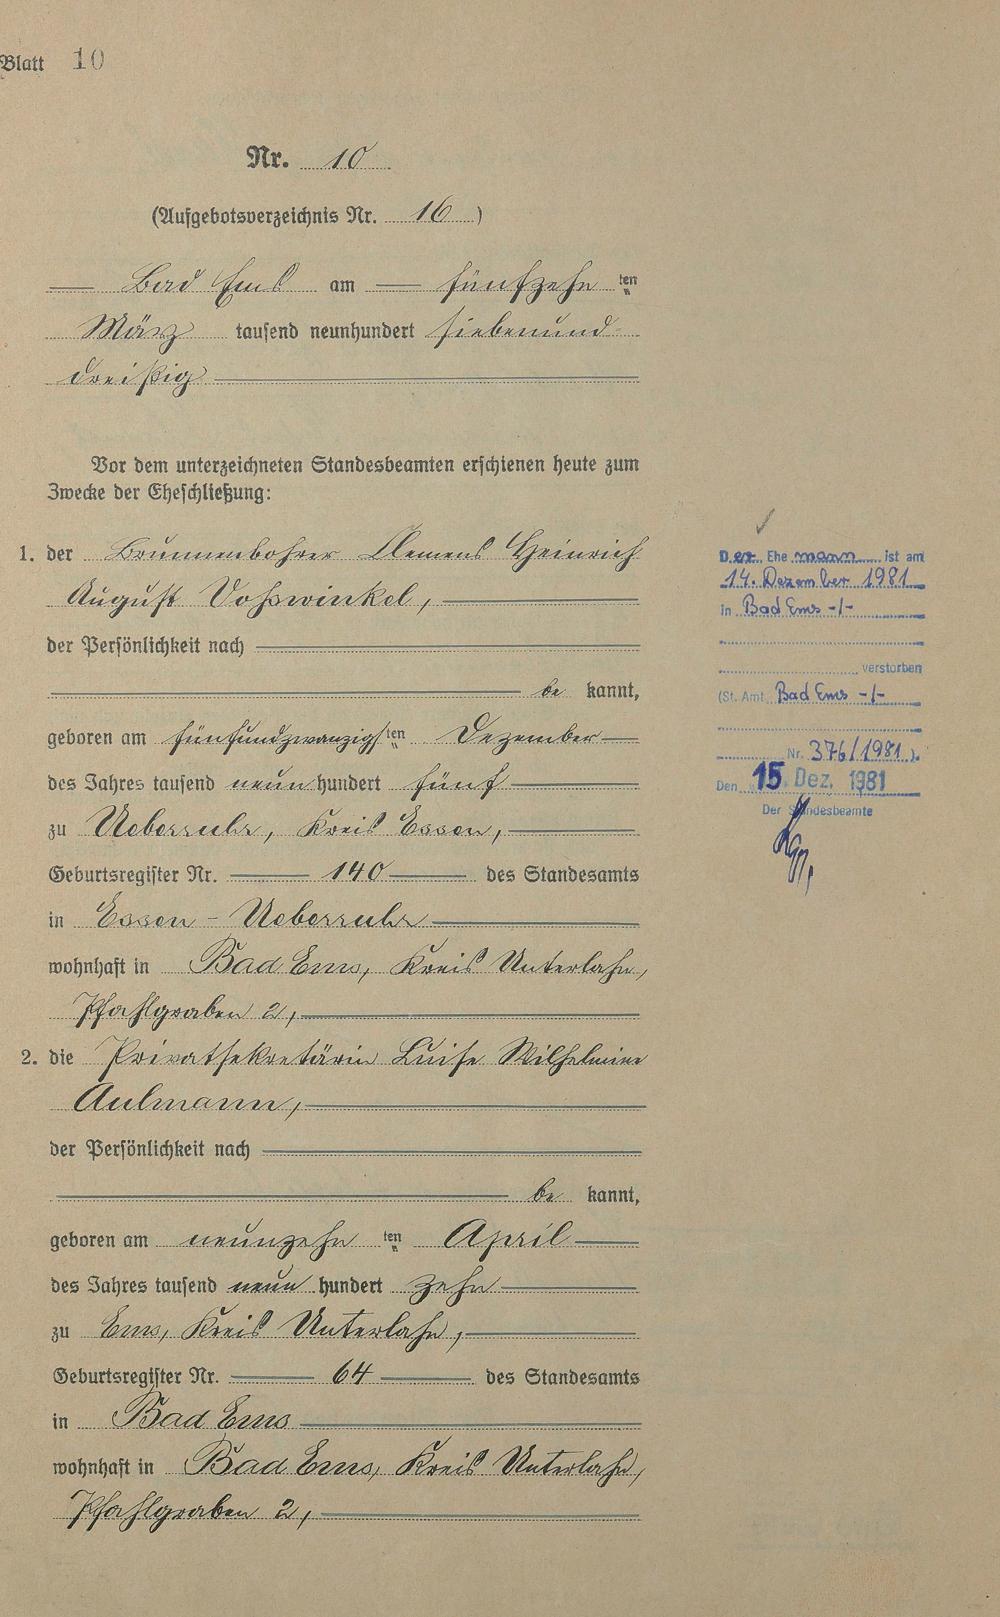 Blatt 10
Nr. 10
(Aufgebotsverzeichnis Nr. 16)
Bad Ems am fünfzehn ten
März tausend neunhundert siebenund-
dreißig
Vor dem unterzeichneten Standesbeamten erschienen heute zum
Zwecke der Eheschließung:
1. der Brunnenbohrer Klemens Heinrich
August Vohswinkel,
der Persönlichkeit nach
be kannt,
geboren am fünfundzwanzigsten Dezember
des Jahres tausend neun hundert fünf
zu Ueberruhr, Kreis Essen,
Geburtsregister Nr. 140 des Standesamts
in Essen - Ueberruhr
wohnhaft in Bad Ems, Kreis Unterlahn,
Pfahlgraben 2,
2. die Privatsekretärin Luise Wilhelmine
Aulmann,
der Persönlichkeit nach
be kannt,
geboren am neunzehn ten April
des Jahres tausend neun hundert zehn
zu Ems, Kreis Unterlahn,
Geburtsregister Nr. 64 des Standesamts
in Bad Ems
wohnhaft in Bad Ems, Kreis Unterlahn,
Pfahlgraben 2,
Der Ehemann ist am
14. Dezember 1981
in Bad Ems -/-
verstorben
(St. Amt Bad Ems -/-
Nr. 376/1981).
Den 15. Dez. 1981
Der Standesbeamte